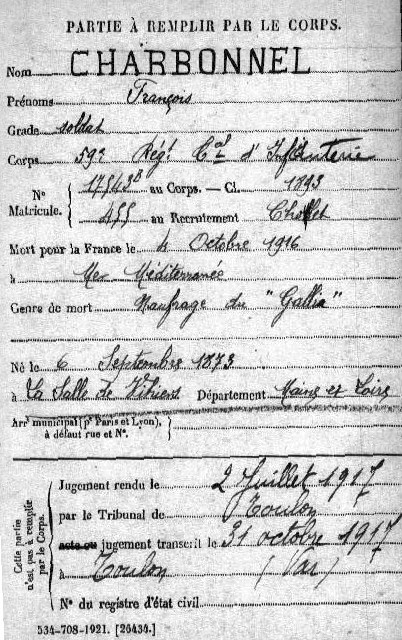 PARTIE À REMPLIR PAR LE CORPS.
Nom CHARBONNEL
Prénoms François
Grade soldat
Corps 59e Régt Cal d'Infanterie
N° Matricule. { 17543B au Corps. — Cl. 1893
455 au Recrutement Chollet
Mort pour la France le 4 Octobre 1916
à Mer Méditerranée
Genre de mort Naufrage du "Gallia"
Né le 6 Septembre 1873
à La Salle de Vihiers Département Maine et Loire
Arrt municipal (pr Paris et Lyon),
à défaut rue et N°.
Cette partie n'est pas à remplir par le Corps.
Jugement rendu le 2 Juillet 1917
par le Tribunal de Toulon
acte ou jugement transcrit le 31 octobre 1917
à Toulon (Var)
N° du registre d'état civil
534-708-1921. [26434.]